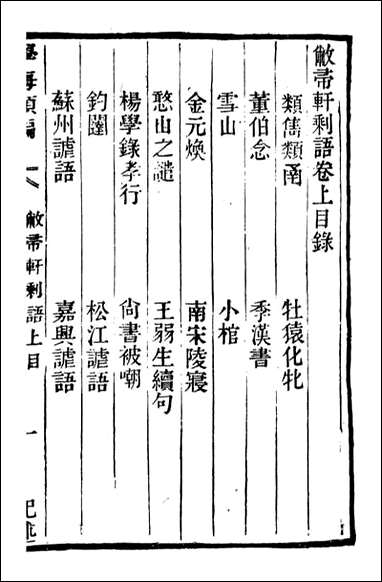 敝帚軒剩語卷上目錄
類雋類函 牡猿化牝
董伯念 季漢書
雪山 小棺
金元煥 南宋陵寢
憨山之譴 王弱生續句
楊學錄孝行 尙書被嘲
釣闥 松江謔語
蘇州謔語 嘉興謔語
學海類編 敝帚軒剩語上目 一 記述